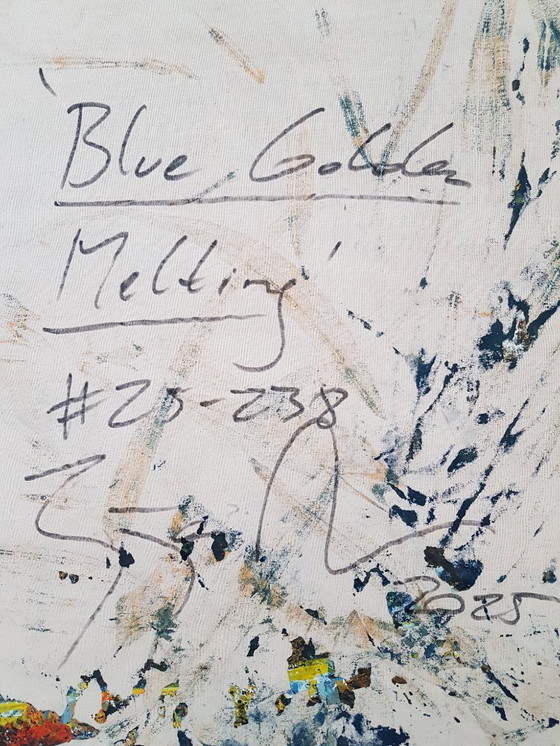 'Blue Golden
Melting'
#25-238
2025